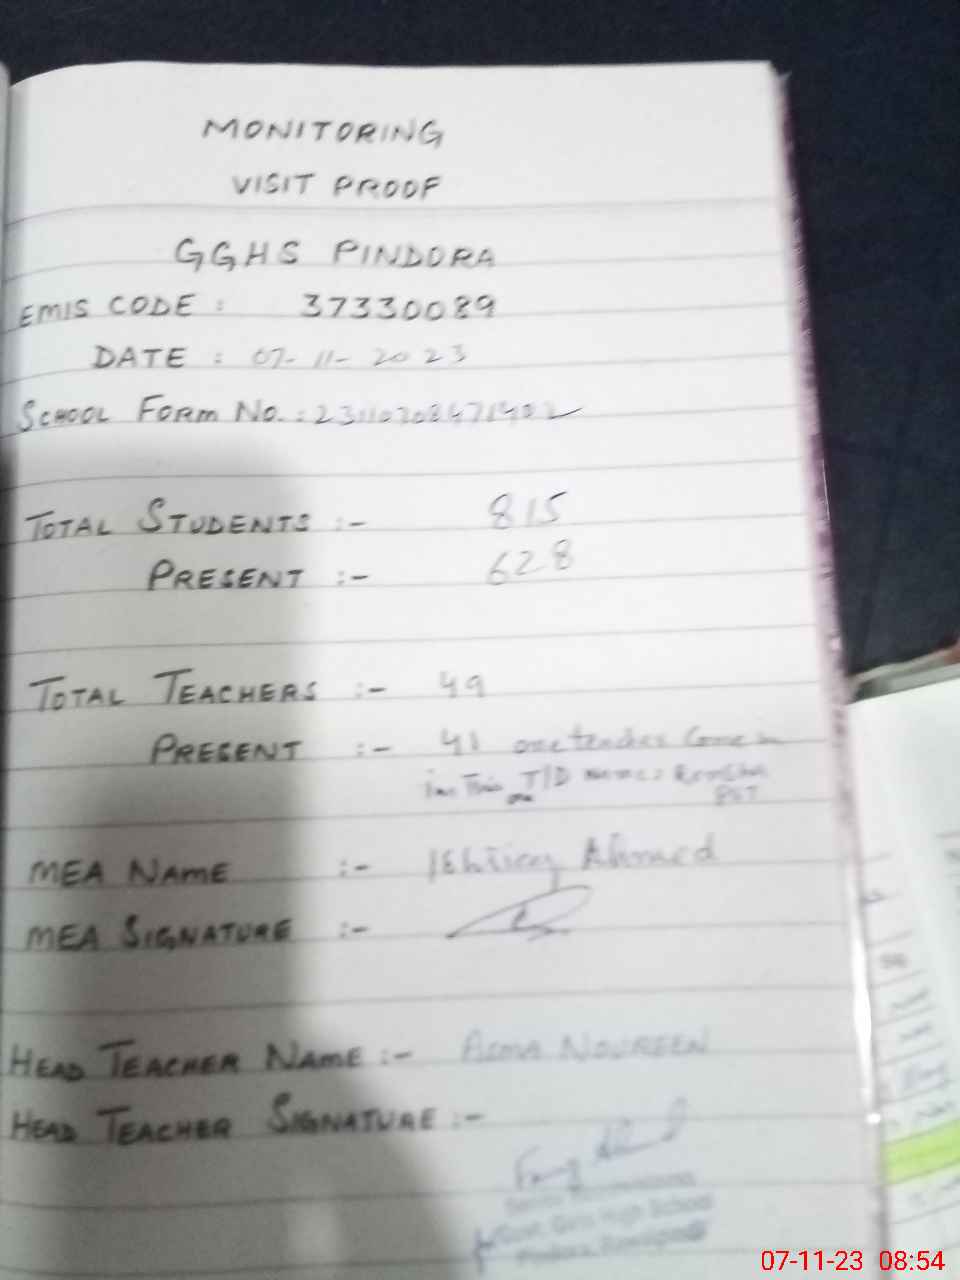 MONITORING
VISIT PROOF
GGHS PINDORA
EMIS CODE : 37330089
DATE : 07-11-2023
SCHOOL FORM NO. : 23110308471402
TOTAL STUDENTS :- 815
PRESENT :- 628
TOTAL TEACHERS :- 49
PRESENT :- 41 one teacher Come in
T/D
PST
MEA NAME :- Ahmed
MEA SIGNATURE :-
HEAD TEACHER NAME :- ASMA NOUREEN
HEAD TEACHER SIGNATURE :-
Govt. Girls High School
Pindora,
07-11-23 08:54